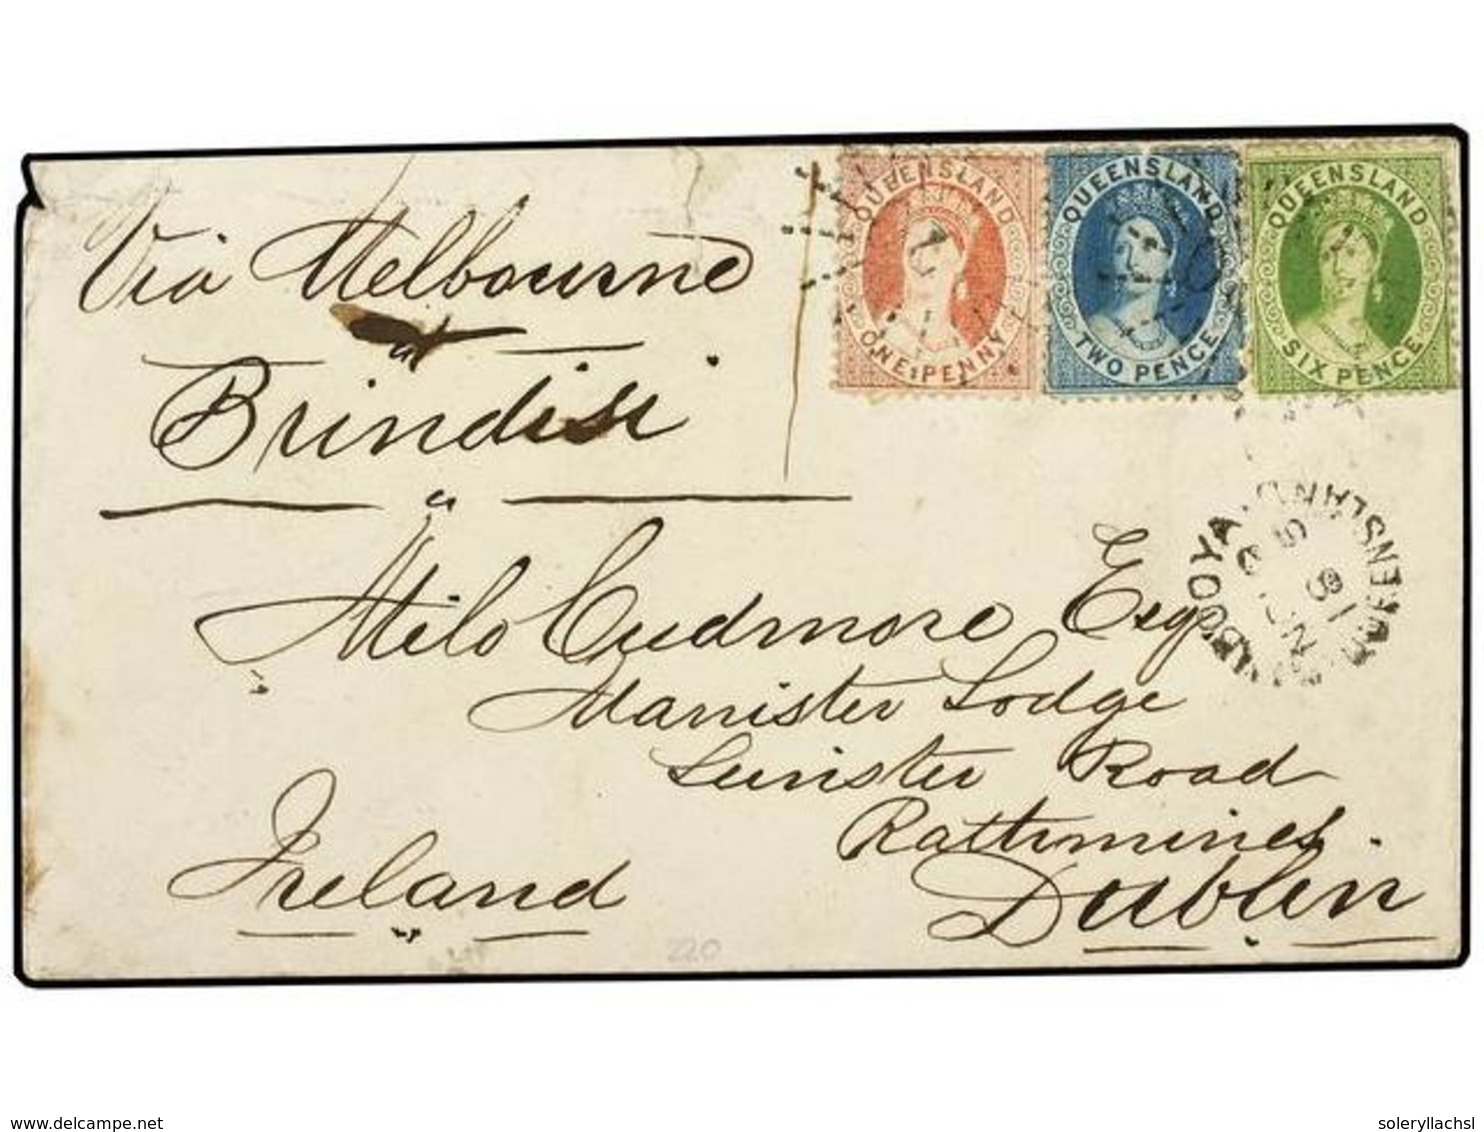 Via Melbourne
Brindisi
QUEENSLAND
ONE PENNY
QUEENSLAND
TWO PENCE
QUEENSLAND
SIX PENCE
QUEENSLAND
Milo Cudmore Esq
Manister Lodge
Leinster Road
Rathmines
Dublin
Ireland
220
delcampe.net
soleryllachsl